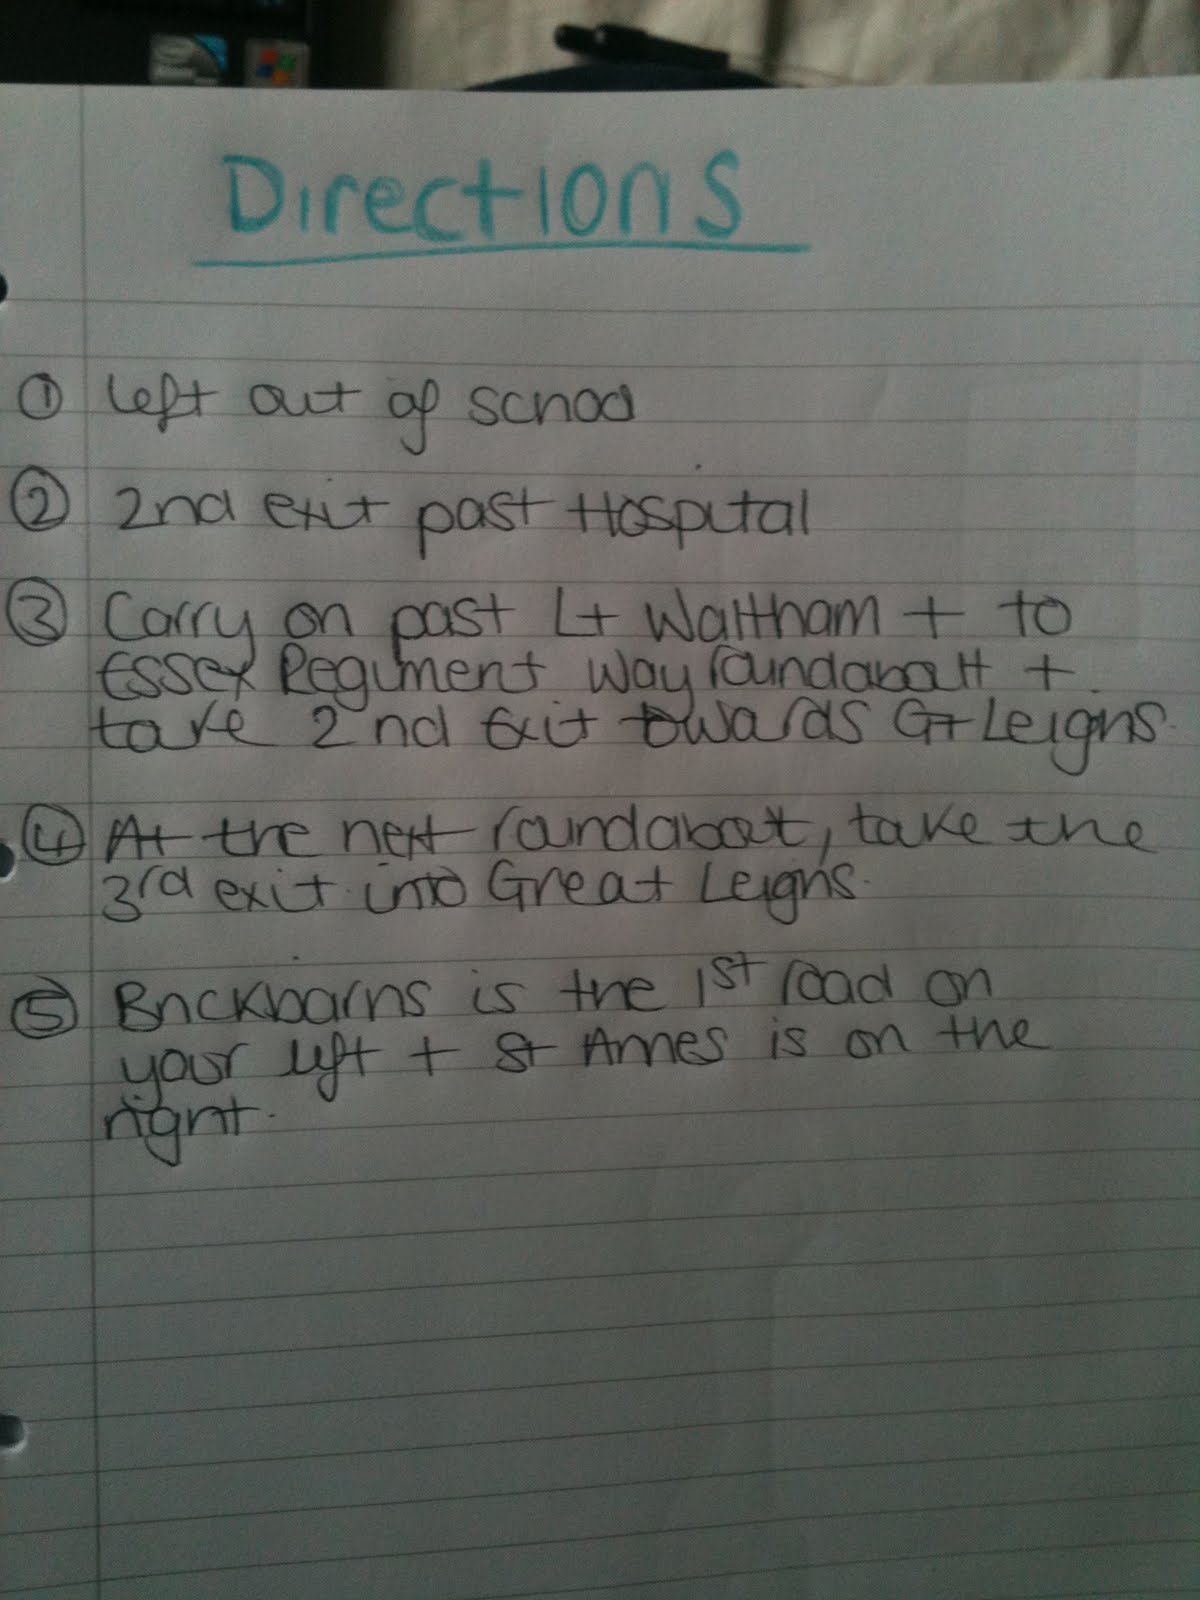 Directions
① Left out of school
② 2nd exit past Hospital
③ Carry on past Lt Waltham + to
Essex Regiment Way roundabout +
take 2nd Exit towards Gt Leighs.
④ At the next roundabout, take the
3rd exit into Great Leighs.
⑤ Brickbarns is the 1st road on
your left + St Annes is on the
right.